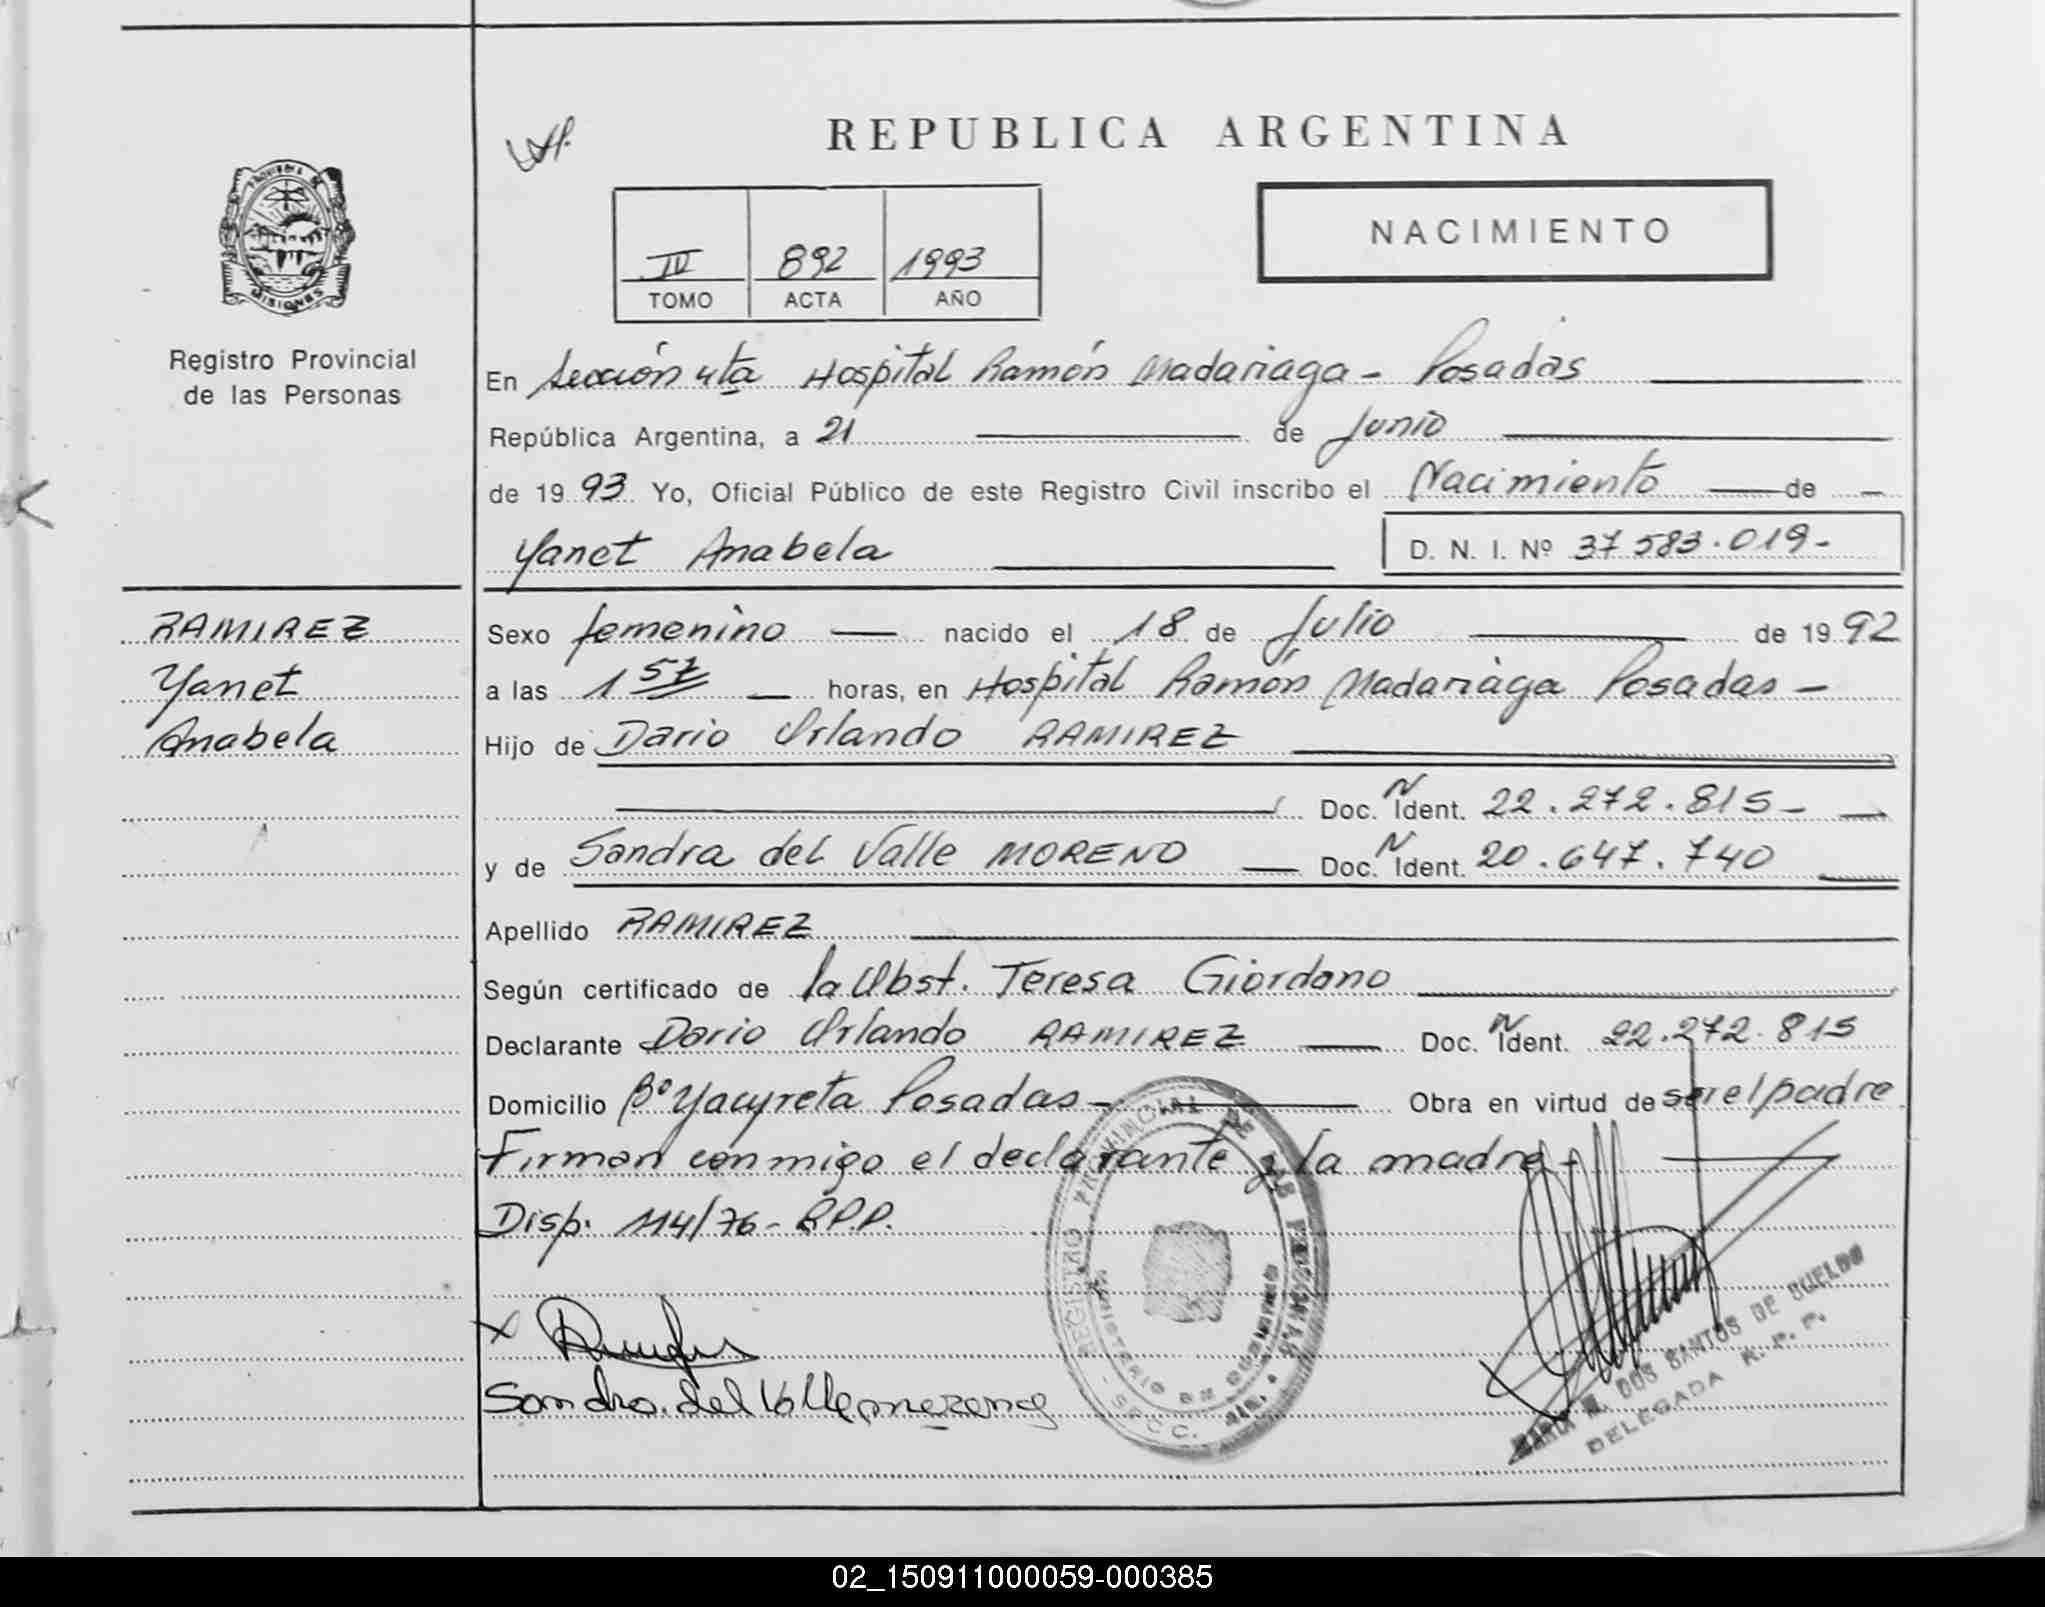 REPUBLICA ARGENTINA
NACIMIENTO
IV 892 1993
TOMO ACTA AÑO
PROVINCIA DE
MISIONES
Registro Provincial
de las Personas
En Sección 4ta Hospital Ramón Madariaga - Posadas
República Argentina, a 21 de Junio
de 1993 Yo, Oficial Público de este Registro Civil inscribo el Nacimiento de
Yanet Anabela D. N. I. Nº 37 583.019-
RAMIREZ
Yanet
Anabela
Sexo femenino nacido el 18 de Julio de 1992
a las 1 57 horas, en Hospital Ramón Madariaga Posadas -
Hijo de Dario Orlando RAMIREZ
Doc. N Ident. 22.272.815-
y de Sandra del Valle MORENO Doc. N Ident. 20.647.740
Apellido RAMIREZ
Según certificado de la Obst. Teresa Giordano
Declarante Dario Orlando RAMIREZ Doc. N Ident. 22.272.815
Domicilio Bº Yacyreta Posadas - Obra en virtud de ser el padre
Firman conmigo el declarante y la madre -
Disp. 114/76 - R.P.P.
REGISTRO PROVINCIAL DE LAS PERSONAS
MINISTERIO DE GOBIERNO
MARIA M. DOS SANTOS DE DUELDO
DELEGADA R. P. P.
Sandra del Valle moreno
02_150911000059-000385